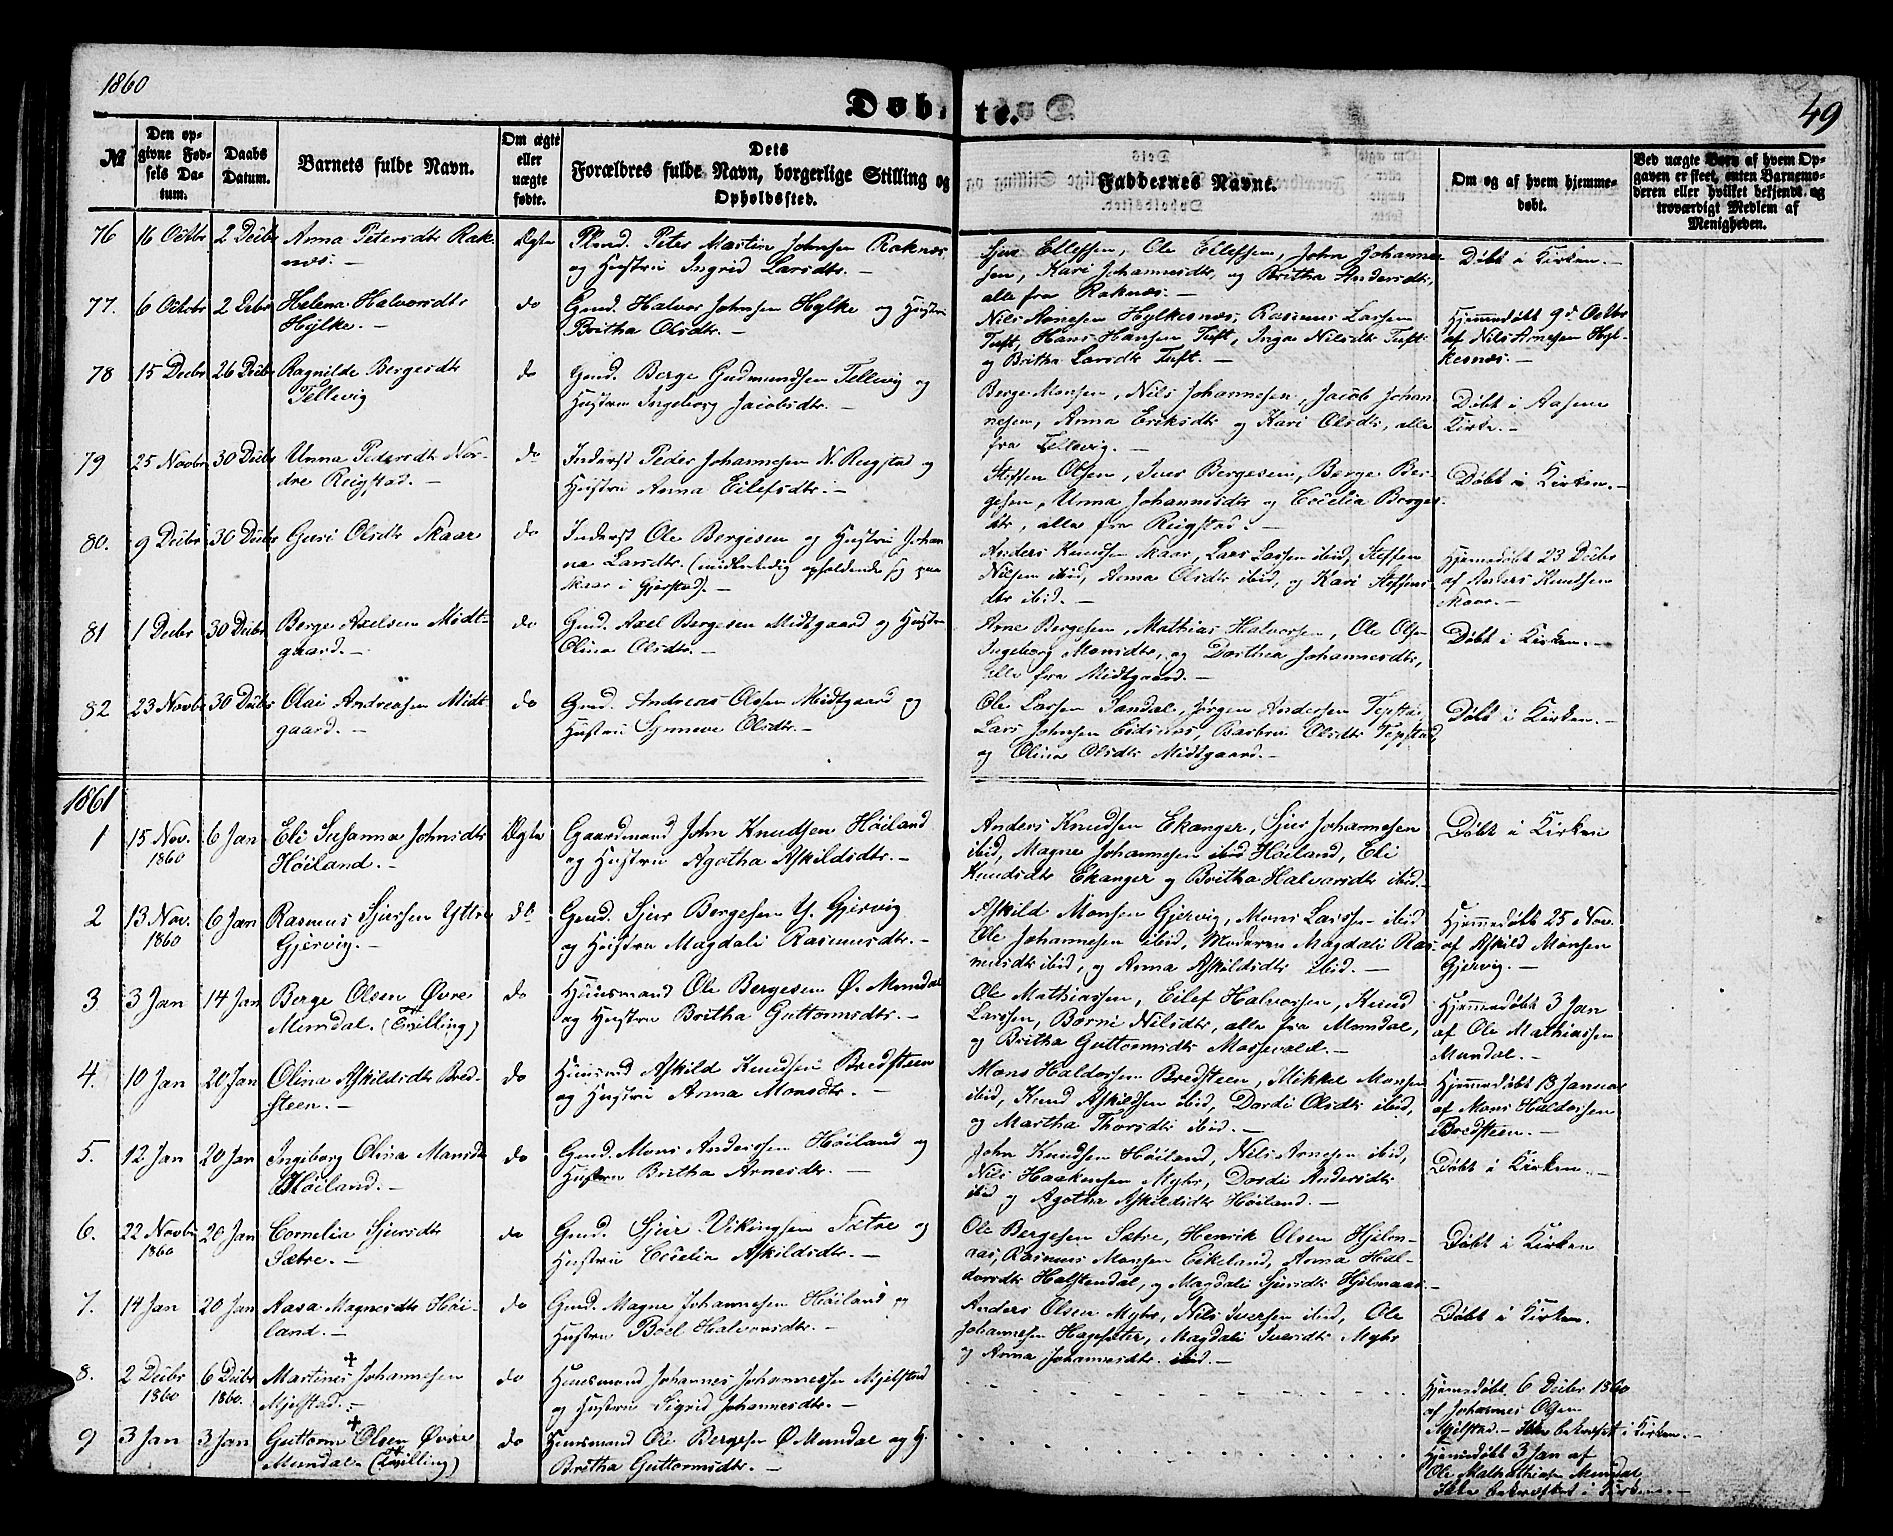 1860
Døbte.
49
№
Den opgivne Fødsels Datum.
Daabs Datum.
Barnets fulde Navn.
Om ægte eller uægte fødte.
Dets Forældres fulde Navn, borgerlige Stilling og Opholdssted.
Faddernes Navne.
Om og af hvem hjemmedøbt.
Ved uægte Børn af hvem Opgaven er skeet, enten Barnemoderen eller hvilket bekjendt og troværdigt Medlem af Menigheden.
76 16 Octbr 2 Decbr Anna Petersdtr Raknæs. — Ægte Plmd. Peter Martin Johnsen Raknæs
og Hustru Ingrid Larsdtr. —
Sjur Ellefsen, Ole Ellefsen, John Johannessen, Kari Johannesdtr, og Britha Andersdtr,
alle fra Raknæs. —
Døbt i Kirken. —
77. 6 Octobr 2 Decbr Helena Halvorsdtr
Hylke. —
do Gmd. Halvor Johnsen Hylke og Hustru
Britha Olsdtr. —
Nils Arnesen Hylkesnæs, Rasmus Larsen
Tuft, Hans Hansen Tuft, Inga Nilsdtr Tuft
og Britha Larsdtr Tuft. —
Hjemmedøbt 9d Octbr
af Nils Arnesen Hylkesnæs. —
78 15 Decbr 26 Decbr Ragnilde Bergesdtr
Tellevig
do Gmd. Berge Gudmundsen Tellevig og
Hustru Ingeborg Jacobsdtr. —
Berge Monsen, Nils Johannesen, Jacob Johannesen, Anna Eriksdtr og Kari Olsdtr, alle
fra Tellevig. —
Døbt i Aasene
Kirke. —
79 25 Novbr 30 Decbr Unna Pedersdtr Nordre Reigstad. —
do Inderst Peder Johannesen N. Reigstad og
Hustru Anna Eilefsdtr. —
Steffen Olsen, Iver Bergesen, Berge Bergesen, Unna Johannesdtr og Cecelia Bergesdtr, alle fra Reigstad. —
Døbt i Kirken. —
80. 9 Decbr 30 Decbr Guri Olsdtr Skaar
do Inderst Ole Bergesen og Hustru Johanna Larsdtr. (midlertidig opholdende sig paa
Skaar i Gjerstad). —
Anders Knudsen Skaar, Lars Larsen ibid, Steffen
Nielsen ibid, Anna Olsdtr ibid, og Kari Steffensdtr ibid. —
Hjemmedøbt 23 Decbr
af Anders Knudsen
Skaar. —
81 1 Decbr 30 Decbr Berge Axelsen Midtgaard. —
do Gmd. Axel Bergesen Midtgaard og Hustru
Olina Olsdtr. —
Arne Bergesen, Mathias Halvorsen, Ole Olsen
Ingeborg Monsdtr, og Dorthea Johannesdtr,
alle fra Midtgaard. —
Døbt i Kirken. —
82 23 Novbr 30 Decbr Olai Andreasen Midtgaard. —
do Gmd. Andreas Olsen Midtgaard og
Hustru Synneve Olsdtr. —
Ole Larsen Sandal, Jørgen Andersen
Lars Johnsen Eidsnes, Barbru Olsdtr
og Olina Olsdtr Midtgaard. —
Døbt i Kirken. —
1861
1 15 Nov. 1860 6 Jan Eli Susanna Johnsdtr
Høiland. —
Ægte Gaardmand John Knudsen Høiland
og Hustru Agatha Askildsdtr. —
Anders Knudsen Ekanger, Sjur Johannesen
ibid, Magne Johannesen ibid Høiland, Eli
Knudsdtr Ekanger og Britha Halvorsdtr ibid. —
Døbt i Kirken
2 13 Nov. 1860 6 Jan Rasmus Sjursen Yttre
Gjervig. —
do Gmd. Sjur Bergesen Y. Gjervig
og Hustru Magdali Rasmusdtr. —
Askild Monsen Gjervig, Mons Larssen ibid
Ole Johannesen ibid, Moderen Magdali Rasmusdtr ibid, og Anna Askildsdtr ibid. —
Hjemmedøbt 25 Nov.
af Askild Monsen
Gjervig. —
3 3 Jan 14 Jan Berge Olsen Øvre
Mundal. (Tvilling)
do Huusmand Ole Bergesen Ø. Mundal
og Hustru Britha Guttormsdtr. —
Ole Mathiassen, Eilef Halvorsen, Knud
Larssen, Børni Nilsdtr, alle fra Mundal,
og Britha Guttormsdtr —
Hjemmedøbt 3 Jan
af Ole Mathiassen
Mundal. —
4. 10 Jan 20 Jan Olina Askildsdtr Bredsteen. —
do Huusmd Askild Knudsen Bredsteen
og Hustru Anna Monsdtr. —
Mons Haldorsen Bredsteen, Mikkel Monsen
ibid, Knud Askildsen ibid, Dordi Olsdtr ibid,
og Martha Thorsdtr ibid. —
Hjemmedøbt 13 Januar
af Mons Haldorsen
Bredsteen. —
5. 12 Jan 20 Jan Ingeborg Olina Monsdtr
Høiland. —
do Gmd. Mons Anderssen Høiland og
Hustru Britha Arnesdtr. —
John Knudsen Høiland, Nils Arnesen ibid,
Nils Haakensen Myhr, Dordi Andersdtr
ibid og Agatha Askildsdtr Høiland. —
Døbt i Kirken. —
6. 22 Novbr 1860 20 Jan Cornelia Sjursdtr
Sætre. —
do Gmd. Sjur Vikingsen Sætre og
Hustru Cecelia Askildsdtr. —
Ole Bergesen Sætre, Henrik Olsen Hjelmaas, Rasmus Monsen Eikeland, Anna Haldorsdtr Halstendal, og Magdali Sjursdtr Hjelmaas. —
Døbt i Kirken
7. 14 Jan 20 Jan Aasa Magnesdtr Høiland. —
do Gmd. Magne Johannesen Høiland og
Hustru Boel Halvorsdtr. —
Anders Olsen Myhr, Nils Iversen ibid, Ole
Johannesen Hageseter, Magdali Iversdtr Myhr
og Anna Johannesdtr. ibid. —
Døbt i Kirken.
8. 2 Decbr 1860 6 Decbr 1860. Martines † Johannesen
Mjelstad. —
do Huusmand Johannes Johannessen Mjelstad
og Hustru Sigrid Johannesdtr. —
Hjemmedøbt 6 Decbr 1860
af Johannes Olsen
Mjelstad — Ikke bekræftet i Kirken. —
9 3 Jan 3 Jan Guttorm † Olsen Øvre
Mundal. (Tvilling)
do Huusmand Ole Bergesen Ø. Mundal og H.
Britha Guttormsdtr. —
Hjemmedøbt 3 Jan af
Ole Mathiassen Mundal
Ikke bekræftet i Kirken. —